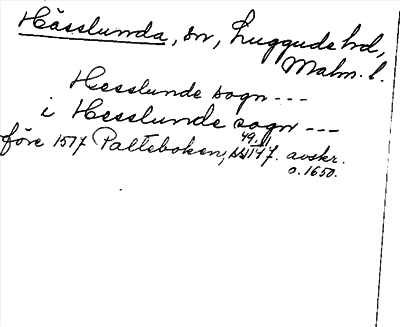 Hässlunda, sn, Luggude hd,
Malm. l.
Hesslunde sogn ---
i Hesslunde sogn ---
före 1517 Palteboken, ss. 49, 147. avskr.
o. 1650.